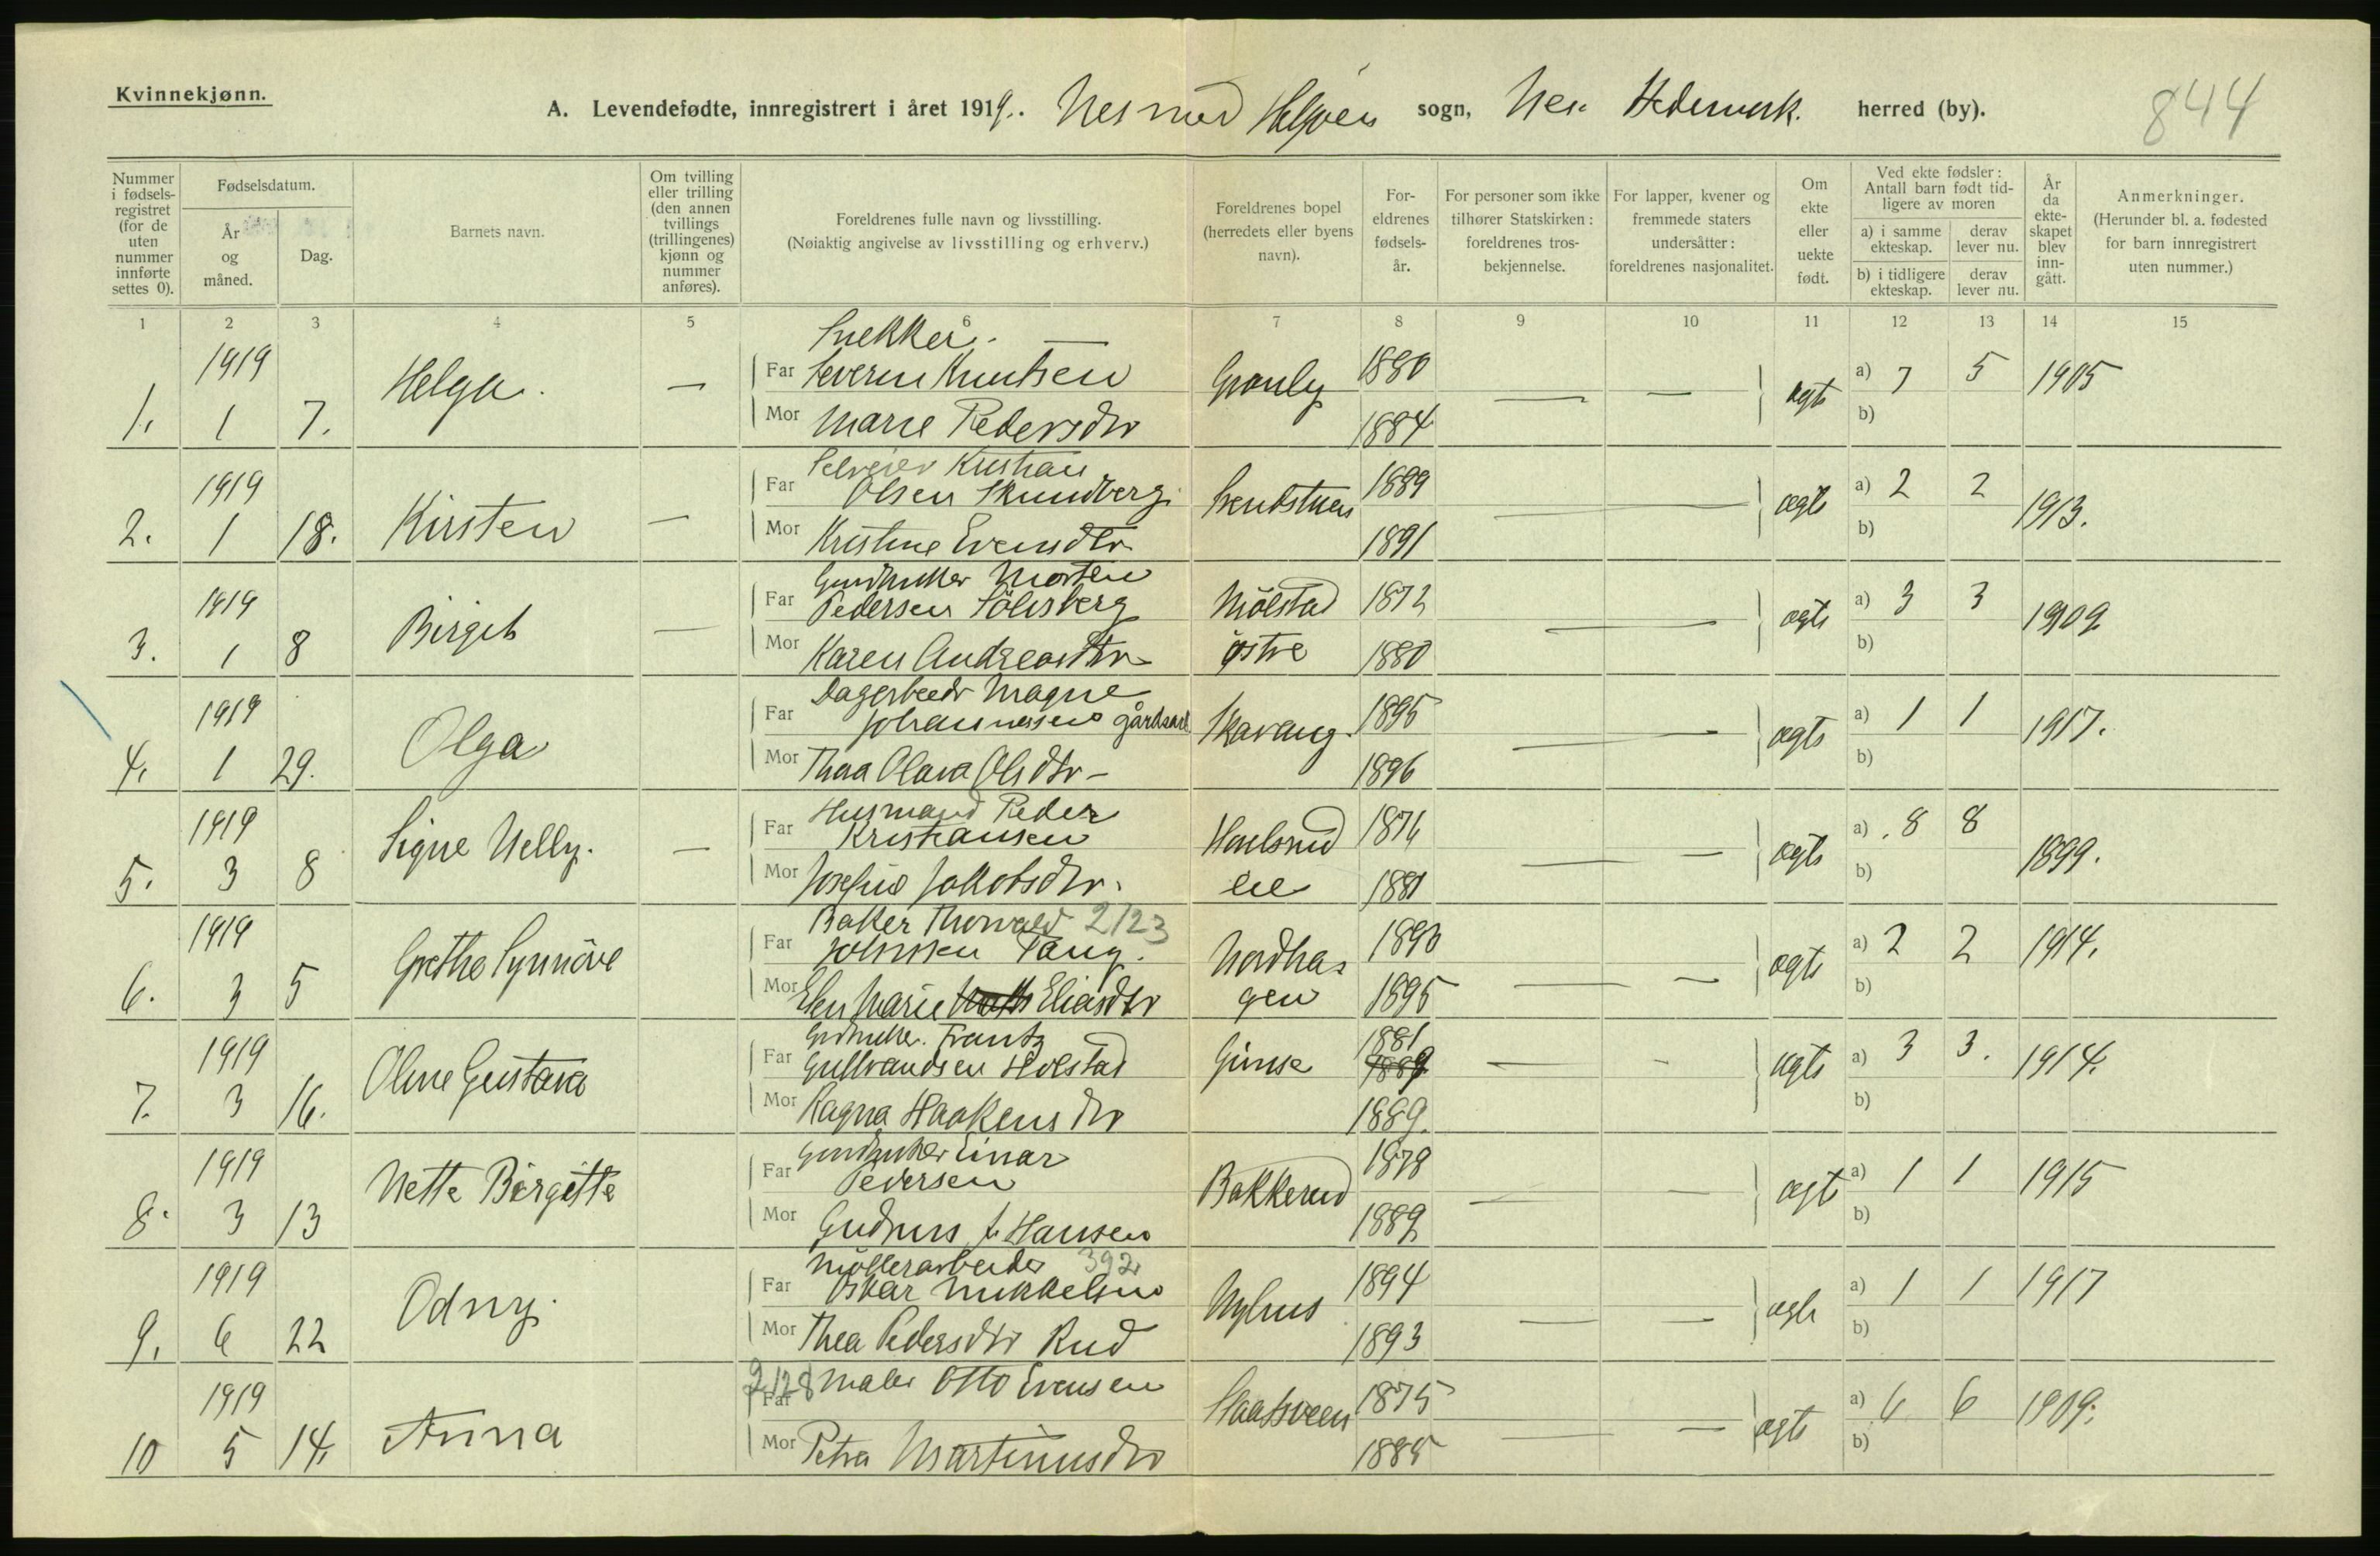 Kvinnekjønn.
A. Levendefødte, innregistrert i året 1919. Nes med Helgøen sogn, Nes Hedemark. herred (by). 844
Nummer i fødsels- registret (for de uten nummer innførte settes 0).
Fødselsdatum.
År og måned.
Dag.
Barnets navn.
Om tvilling eller trilling (den annen tvillings (trillingenes) kjønn og nummer anføres).
Foreldrenes fulle navn og livsstilling.
(Nøiaktig angivelse av livsstilling og erhverv.)
Foreldrenes bopel (herredets eller byens navn).
For- eldrenes fødsels- år.
For personer som ikke tilhører Statskirken: foreldrenes tros- bekjennelse.
For lapper, kvener og fremmede staters undersåtter: foreldrenes nasjonalitet.
Om ekte eller uekte født.
Ved ekte fødsler: Antall barn født tid- ligere av moren
a) i samme ekteskap.
derav lever nu.
b) i tidligere ekteskap.
derav lever nu.
År da ekte- skapet blev inn- gått.
Anmerkninger.
(Herunder bl. a. fødested for barn innregistrert uten nummer.)
1 2 3 4 5 6 7 8 9 10 11 12 13 14 15
Snekker.
1919 Helga. — Far Severin Knutsen Granly 1880 — — ægte a) 7 5 1905
1. 1 7. Mor Marie Pedersdtr 1884 b)
Selveier Kristian
1919 Far Olsen Skundberg 1889 a) 2 2
2. 1 18. Kirsten — Mor Kristine Evensdtr. 1891 ægte b) 1913.
Gårdbruker Morten
1919 Far Pedersen Mølstad 1872 a) 3 3
3. 1 8 Birgit — Mor Karen Andreasdtr østre 1880 ægte b) 1909.
Dagarbeidr Magne
1919 Far Johannessen gårdsarb Skavang. 1895 a) 1 1
4. 1 29. Olga Mor Thea Olava Olsdtr — 1896 ægte b) 1917.
Husmand Peder
1919 Far Kristiansen 1876 a) 8 8
5. 3 8 Signe Nelly. — Mor Josefine Jakobsdtr. eie 1881 ægte b) 1899.
Baker Thorvald 2123
1919 Far Johnsen Tang. Nordha- 1890 a) 2 2 1914.
6. 3 5 Grethe Synnöve Mor Elen Marie Eliasdtr gen 1895 ægte b)
Gårdbruker. Frantz
1919 Far Gulbrandsen Holstad Gimse 1881 1889 a) 3 3. 1914.
7. 3 16. Oline Gustava Mor Ragna Haakensdtr 1889. ægte b)
Gårdbruker Einar
1919 Far Pedersen 1878 a) 1 1 1915
8. 3 13 Nette Birgitte Mor Gudrun f. Hansen Bakkerud 1889 ægte b)
Møllerarbeider 392
1919 Far Oskar Mikkelsen Nyhus 1894 a) 1 1 1917
9. 6 22 Odny. Mor Thea Pedersdtr Rud 1893 ægte b)
2128 Maler Otto Evensen
1919 Far 1875 a) 6 6 1909.
10 5 14. Anna Mor Petra Martinusdtr 1885 ægte b)